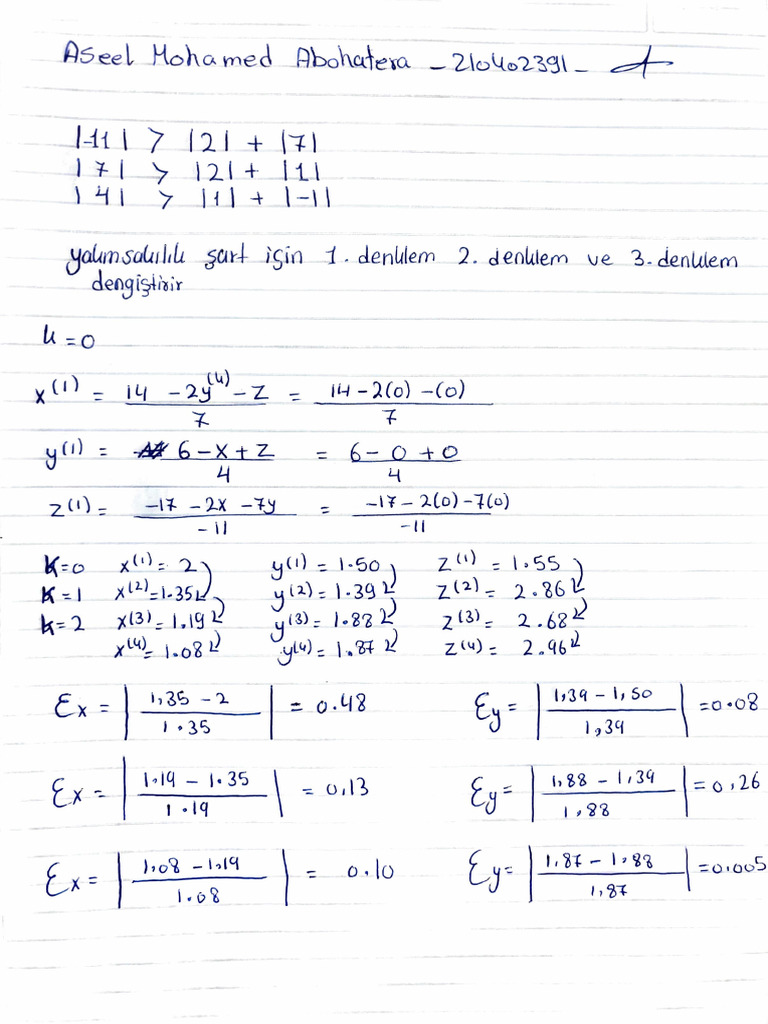 Aseel Mohamed Abohatera - 210402391 -
|-11| > |2| + |7|
|7| > |2| + |1|
|4| > |1| + |-1|
yakınsaklık şart için 1. denklem 2. denklem ve 3. denklem
dengiştirir
k = 0
x^(1) = (14 - 2y^(k) - z)/7 = (14 - 2(0) - (0))/7
y^(1) = (6 - x + z)/4 = (6 - 0 + 0)/4
z^(1) = (-17 - 2x - 7y)/-11 = (-17 - 2(0) - 7(0))/-11
k=0 x^(1) = 2 y^(1) = 1.50 z^(1) = 1.55
k=1 x^(2) = 1.35 y^(2) = 1.39 z^(2) = 2.86
k=2 x^(3) = 1.19 y^(3) = 1.88 z^(3) = 2.68
x^(4) = 1.08 y^(4) = 1.87 z^(4) = 2.96
Ex = |(1,35 - 2)/1.35| = 0.48 Ey = |(1,39 - 1,50)/1,39| = 0.08
Ex = |(1.19 - 1.35)/1.19| = 0,13 Ey = |(1,88 - 1,39)/1,88| = 0,26
Ex = |(1,08 - 1,19)/1.08| = 0.10 Ey = |(1,87 - 1,88)/1,87| = 0.005